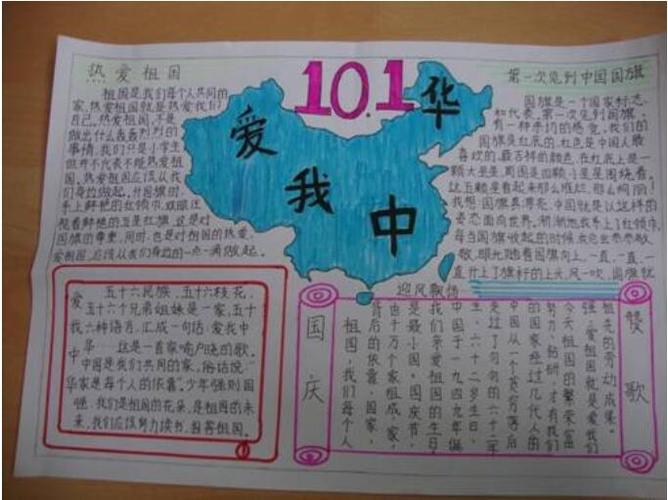 10.1
爱我中华
热爱祖国
祖国是我们每个人共同的
家,热爱祖国就是热爱我们
自己,热爱祖国,不是
做出什么轰轰烈烈的
事情,我们只是小学生
但并不代表不能热爱祖
国,热爱祖国应该从我
们身边做起,升国旗时
手上鲜艳的红领巾,双眼注
视着鲜艳的五星红旗,这是对
国旗的尊重,同时,也是对祖国的热爱,
爱祖国,应该从我们身边的一点一滴做起。
第一次见到中国国旗
国旗是一个国家标志
和代表,第一次见到国旗,
有一种亲切的感觉,我们的
国旗是红底的,红色是中国人最
喜欢的,最吉祥的颜色,在红底上是一
颗大星星,周围是四颗小星星围绕着,
这五颗星看起来那么雄壮,那么绚丽!
我想:国旗真漂亮,中国就是以这样的
姿态面向世界,渐渐地我手上了红领巾,
每当国旗升起的时候,我总会恭恭敬
敬,眼光随着国旗向上,一直,一直,一
直升上了旗杆的上头,风一吹,国旗就
迎风飘扬
爱我中华
五十六民族,五十六枝花,
五十六个兄弟姐妹是一家,五十
六种语言,汇成一句话,爱我中
华……这是一首家喻户晓的歌。
中国是我们共同的家,俗话说:“
家是每个人的依靠”,少年强则国
强,我们是祖国的花朵,是祖国的未
来,我们应该努力读书,报答祖国。
国庆
赞歌
祖先的劳动成果。
强,爱祖国就是爱我们
今天祖国的繁荣富
努力、钻研,才有我们
的国家经过几代人的
中国从一个贫穷落后
走过了匆匆的六十二年
生,六十二岁生日,
中国于一九四九年诞
我们亲爱祖国的生日
是最小国。国庆节,
由千万个家组成,家,
背后的依靠,国家,
祖国,我们每个人